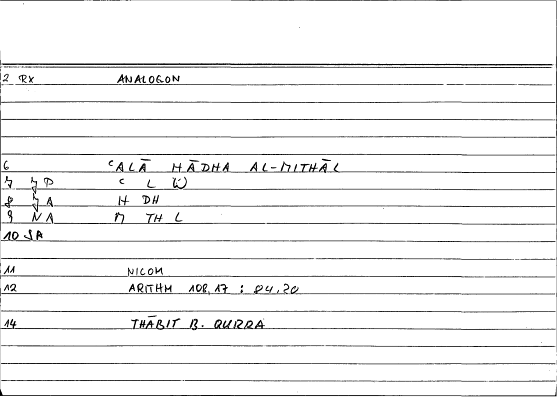 2 RX ANALOGON
6 ʿALĀ HĀDHA AL-MITHĀL
7 JP ʿ L W
8 JA H DH
9 NA M TH L
10 SA
11 NICOM
12 ARITHM 108,17 : 84,20
14 THĀBIT B. QURRA